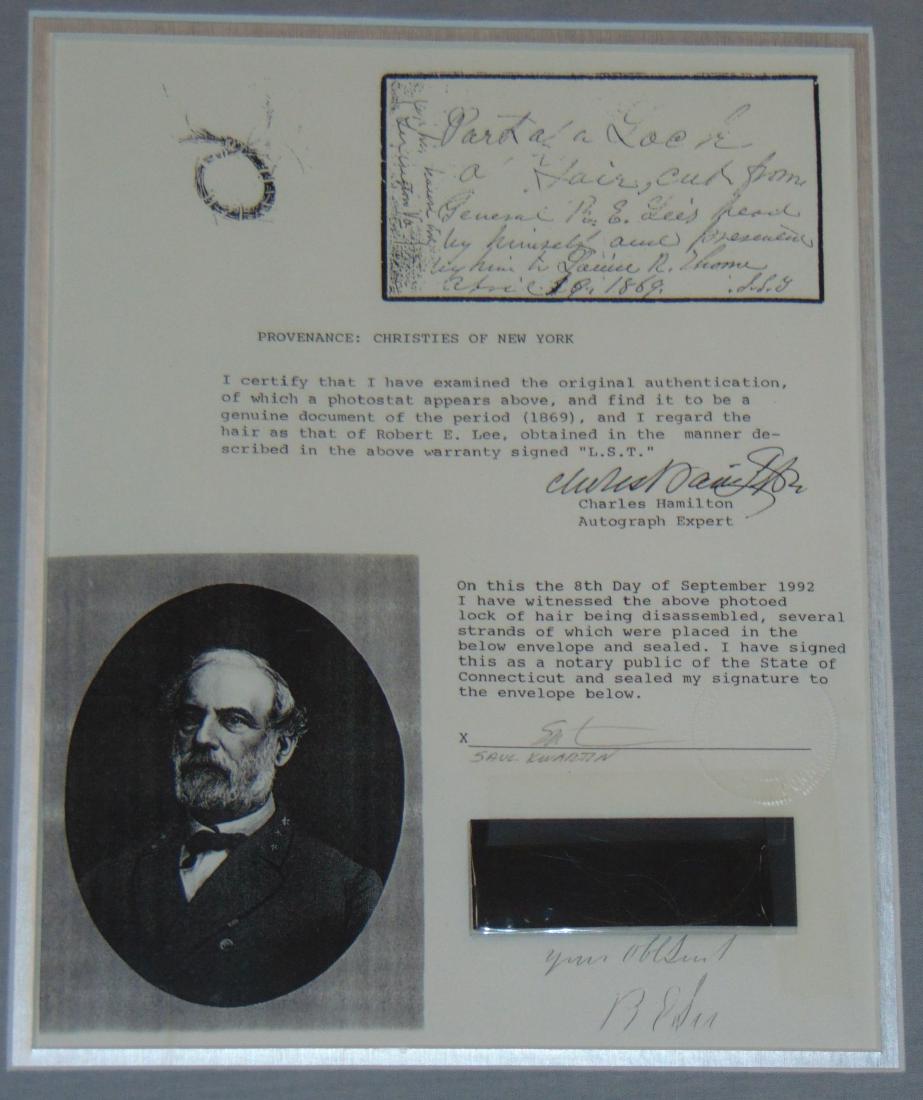 Part of a Lock
of Hair, cut from
General R. E. Lee's head
by himself and presented
by him to R. Thome
April 19, 1869. L.S.T
Lexington Va
PROVENANCE: CHRISTIES OF NEW YORK
I certify that I have examined the original authentication,
of which a photostat appears above, and find it to be a
genuine document of the period (1869), and I regard the
hair as that of Robert E. Lee, obtained in the manner de-
scribed in the above warranty signed "L.S.T."
Charles Hamilton
Charles Hamilton
Autograph Expert
On this the 8th Day of September 1992
I have witnessed the above photoed
lock of hair being disassembled, several
strands of which were placed in the
below envelope and sealed. I have signed
this as a notary public of the State of
Connecticut and sealed my signature to
the envelope below.
X
SAUL KWARTIN
Your Obt Servt
R E Lee